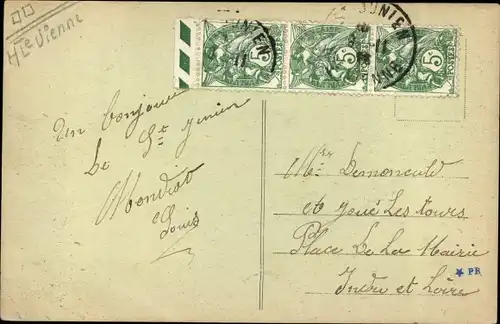 Hte Vienne
JUNIEN
5
5
5
POSTES
Un bonjour
De St Junien
Mondiot
Louis
Mr Demoneuld
à Joué Les Tours
Place De La Mairie
Indre et Loire
PR